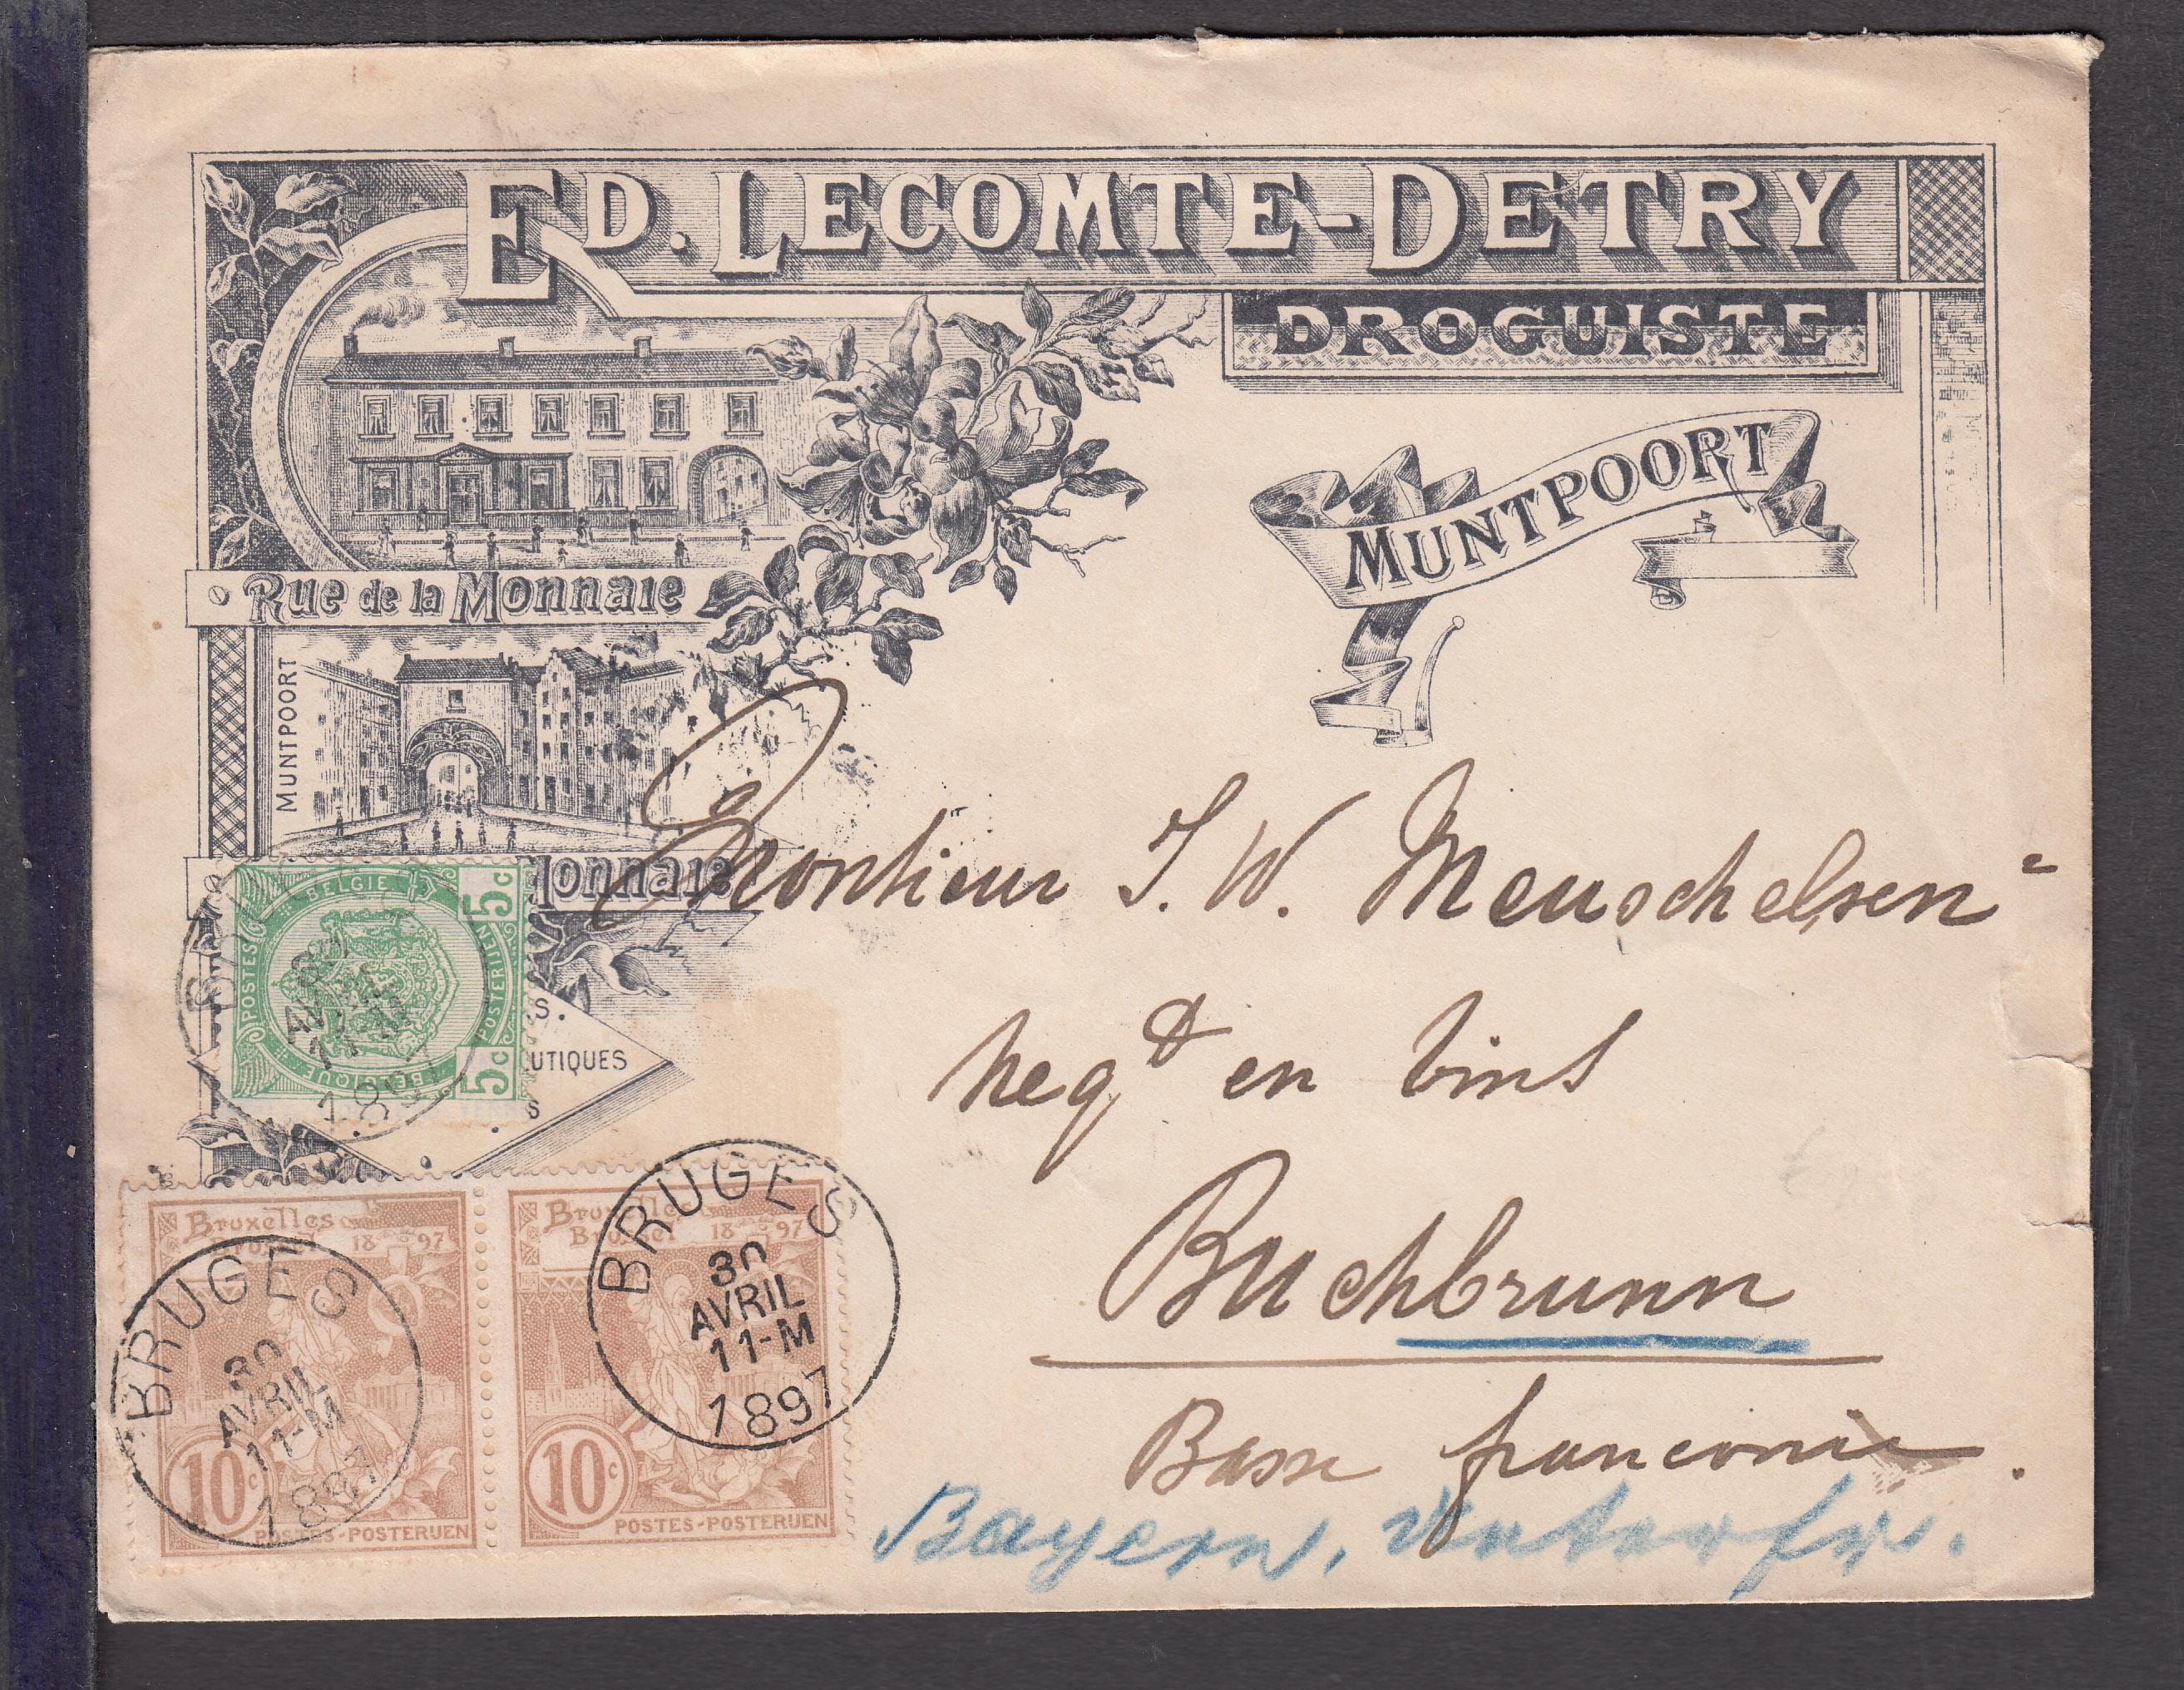 ED. LECOMTE-DETRY
DROGUISTE
MUNTPOORT
Rue de la Monnaie
MUNTPOORT
Monnaie
S.
UTIQUES
S
BELGIE
POSTES
POSTERIJEN
BELGIQUE
5c
5c
BRUGES
30
AVRIL
11-M
1897
Monsieur J. W. Meuschelsen
negt en vins
Buchbrunn
Basse franconie.
Bayern, Unterfr.
Bruxelles
Brussel 1897
10c
POSTES-POSTERIJEN
BRUGES
30
AVRIL
11-M
1897
Bruxelles
Brussel 1897
10c
POSTES-POSTERIJEN
BRUGES
30
AVRIL
11-M
1897